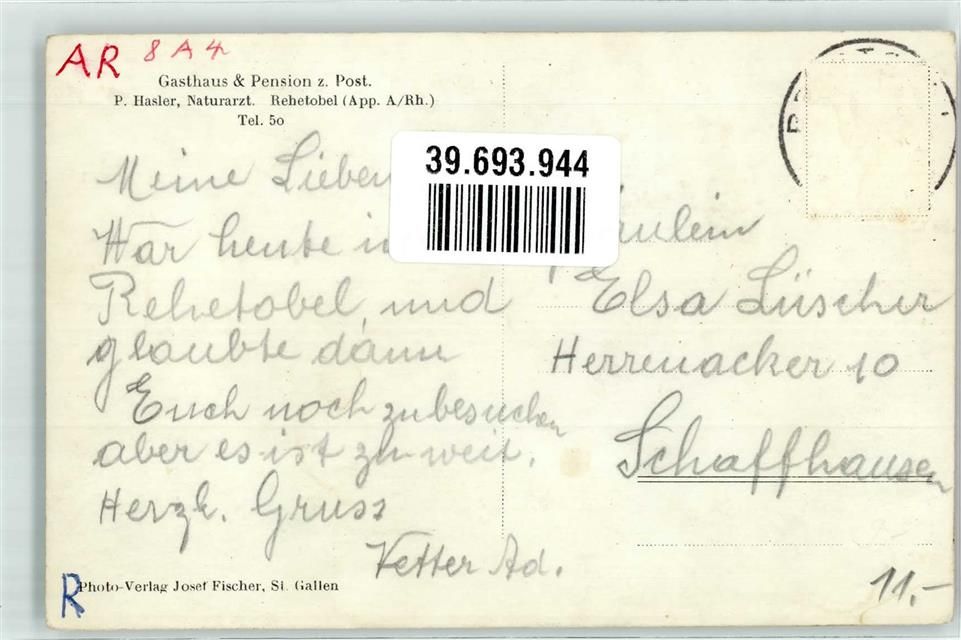 AR 8 A 4
Gasthaus & Pension z. Post.
P. Hasler, Naturarzt. Rehetobel (App. A/Rh.)
Tel. 50
39.693.944
Meine Lieben
War heute in
Rehetobel, und
glaubte dann
Euch noch zu besuchen
aber es ist zu weit.
Herzk. Gruss
Vetter Ad.
Elsa Lüscher
Herrenacker 10
Schaffhausen
R
Photo-Verlag Josef Fischer, St. Gallen
11,-